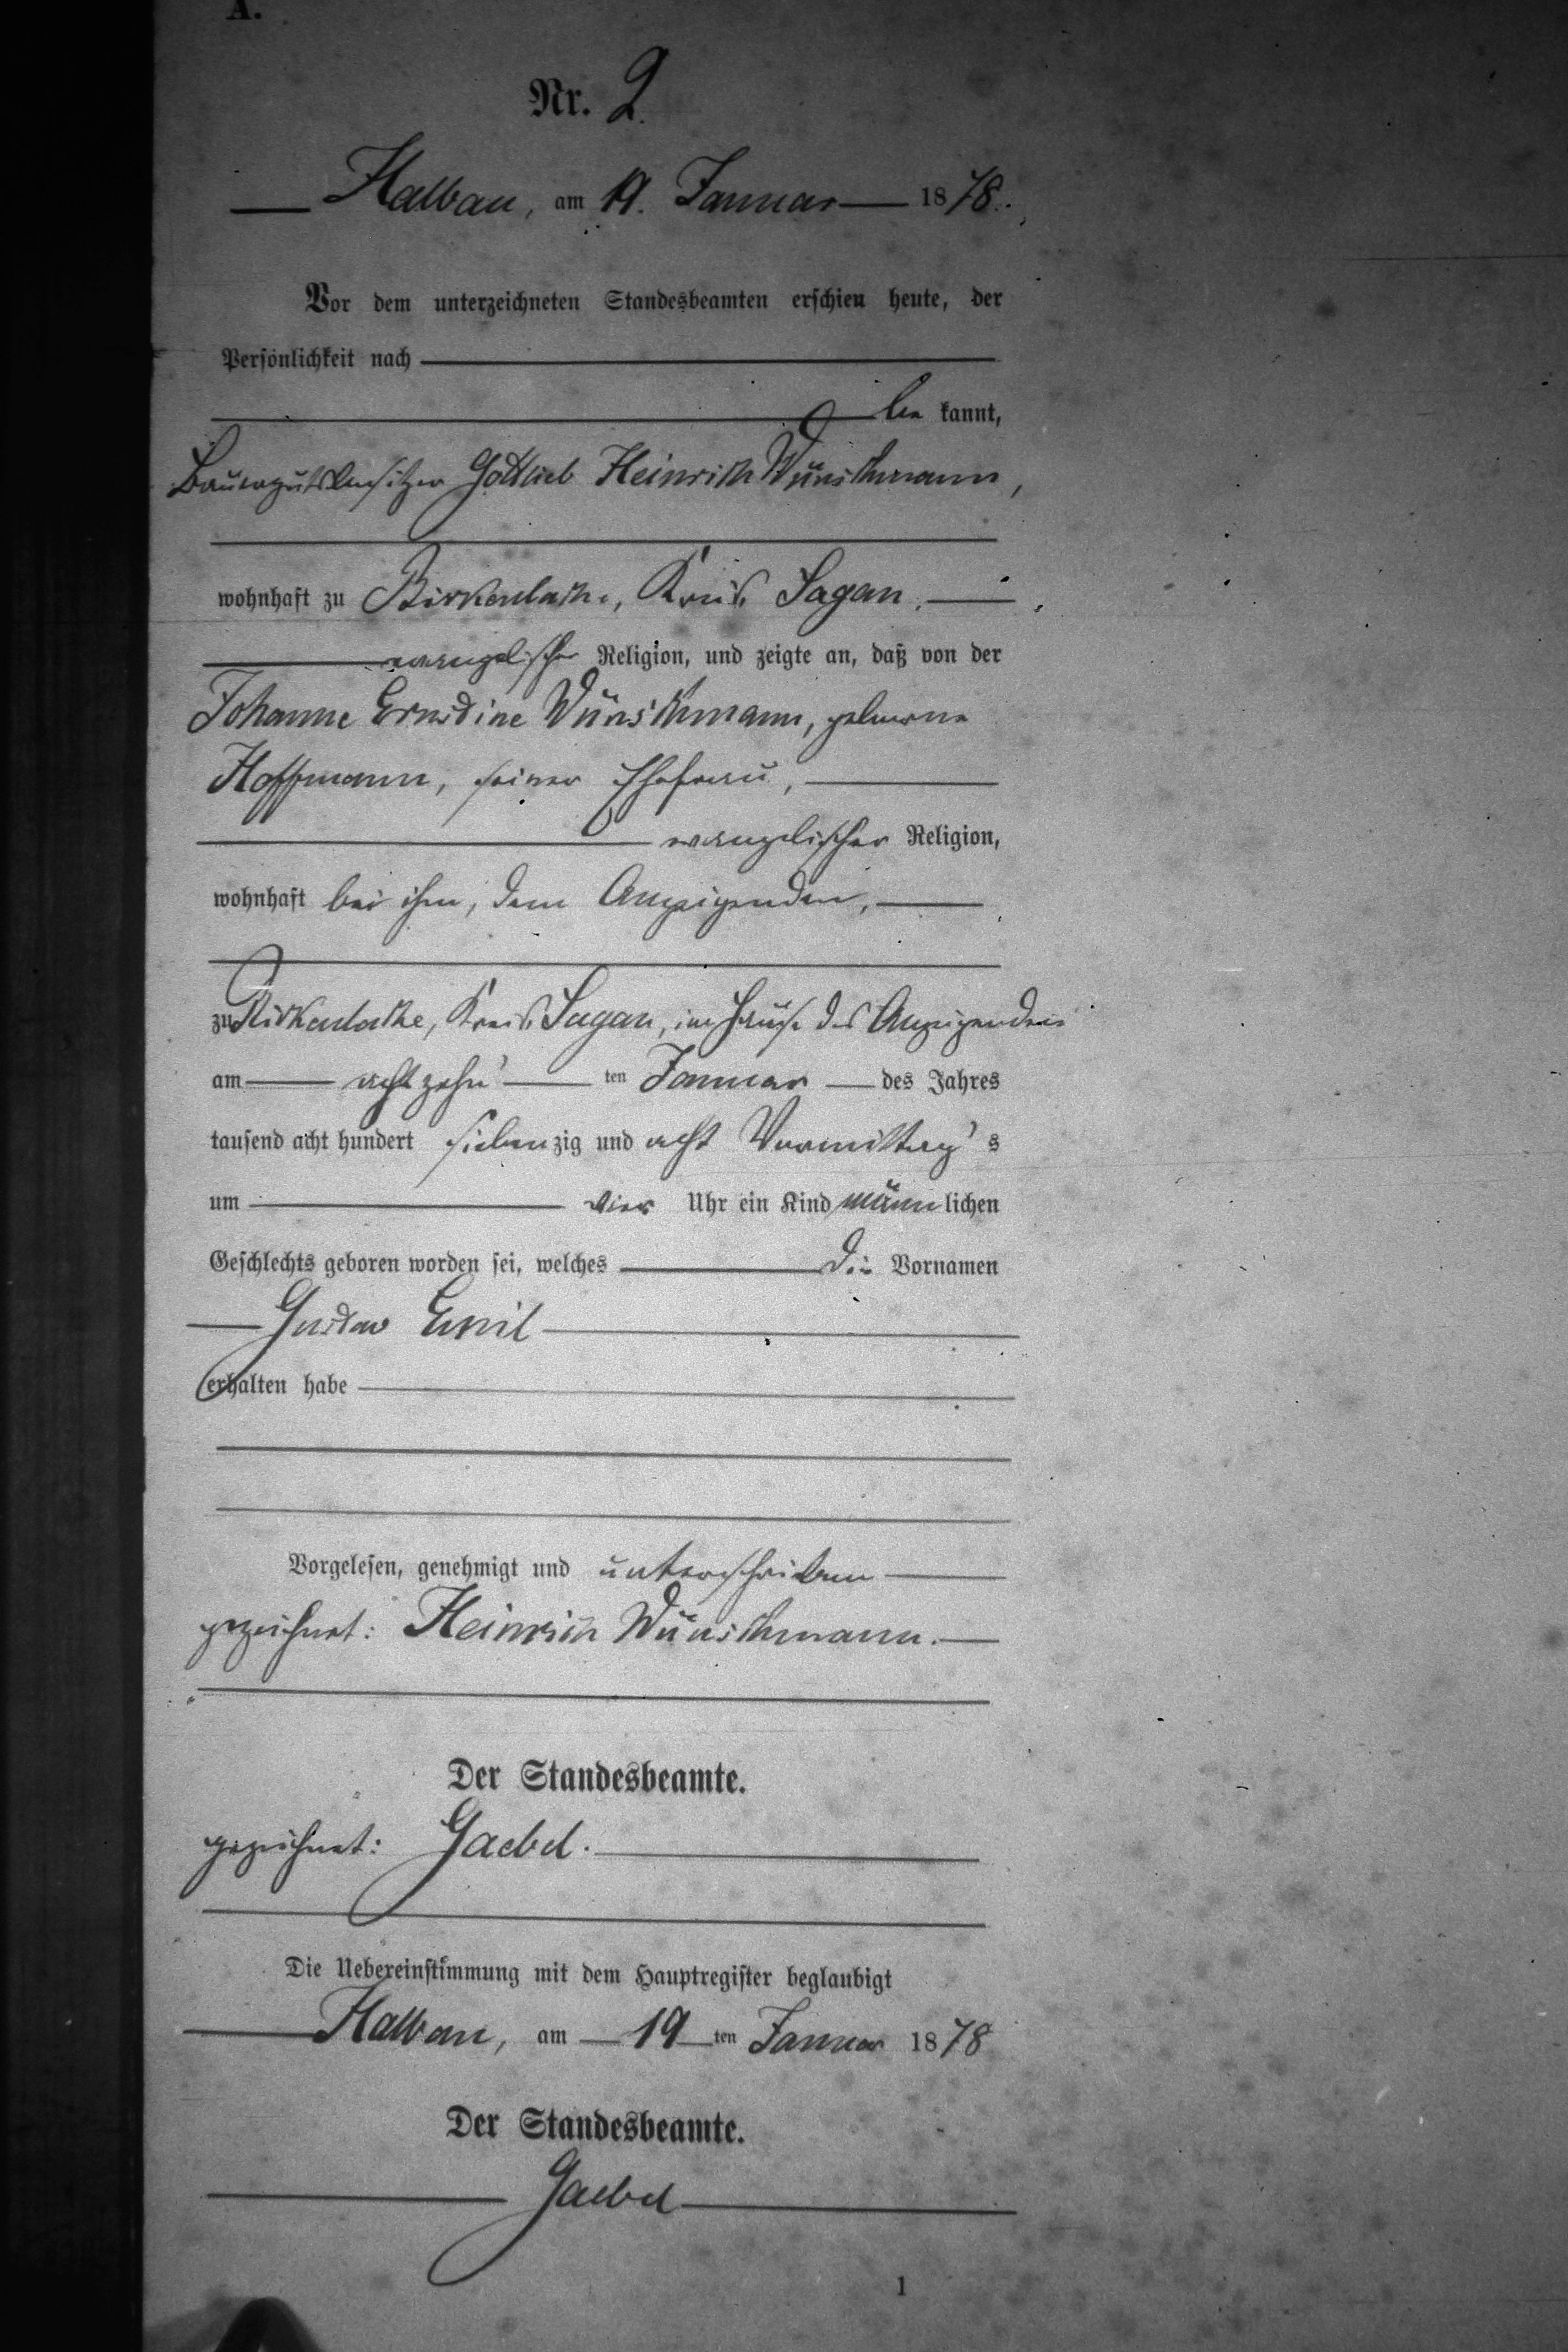 A.
Nr. 2.
Halbau, am 19. Januar 1878.
Vor dem unterzeichneten Standesbeamten erschien heute, der
Persönlichkeit nach
be kannt,
Bauergutsbesitzer Gottlieb Heinrich Wünschmann,
wohnhaft zu Birkenlache, Kreis Sagan,
evangelischer Religion, und zeigte an, daß von der
Johanne Ernstine Wünschmann, geborene
Hoffmann, seiner Ehefrau,
evangelischer Religion,
wohnhaft bei ihm, dem Anzeigenden,
zu Birkenlache, Kreis Sagan, im Hause des Anzeigenden
am achtzehn ten Januar des Jahres
tausend acht hundert siebenzig und acht Vormittag s
um vier Uhr ein Kind männlichen
Geschlechts geboren worden sei, welches die Vornamen
Gustav Emil
erhalten habe
Vorgelesen, genehmigt und unterschrieben
gezeichnet: Heinrich Wünschmann.
Der Standesbeamte.
gezeichnet: Gaebel.
Die Uebereinstimmung mit dem Hauptregister beglaubigt
Halbau, am 19 ten Januar 1878
Der Standesbeamte.
Gaebel
1